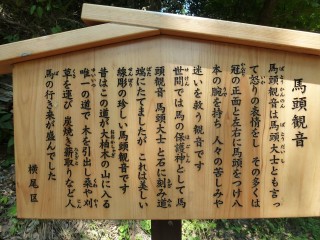 馬頭観音
馬頭観音は馬頭大士とも言っ
て怒りの表情をし その多くは
冠の正面と左右に馬頭をつけ八
本の腕を持ち 人々の苦しみや
迷いを救う観音です
世間では馬の保護神として馬
頭観音 馬頭大士と石に刻み道
端にたてましたが これは美しい
線彫の珍しい馬頭観音です
昔はこの道が大柚木の山に入る
唯一の道で 木を引出し桑や刈
草を運び 炭焼き薪取りなど人
馬の行き来が盛んでした
横尾区